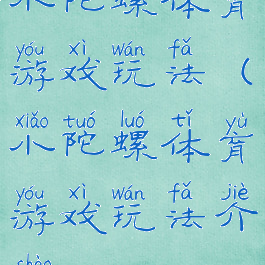 小陀螺体育
yóu xì wán fǎ
游戏玩法（
xiǎo tuó luó tǐ yù
小陀螺体育
yóu xì wán fǎ jiè
游戏玩法介
shào